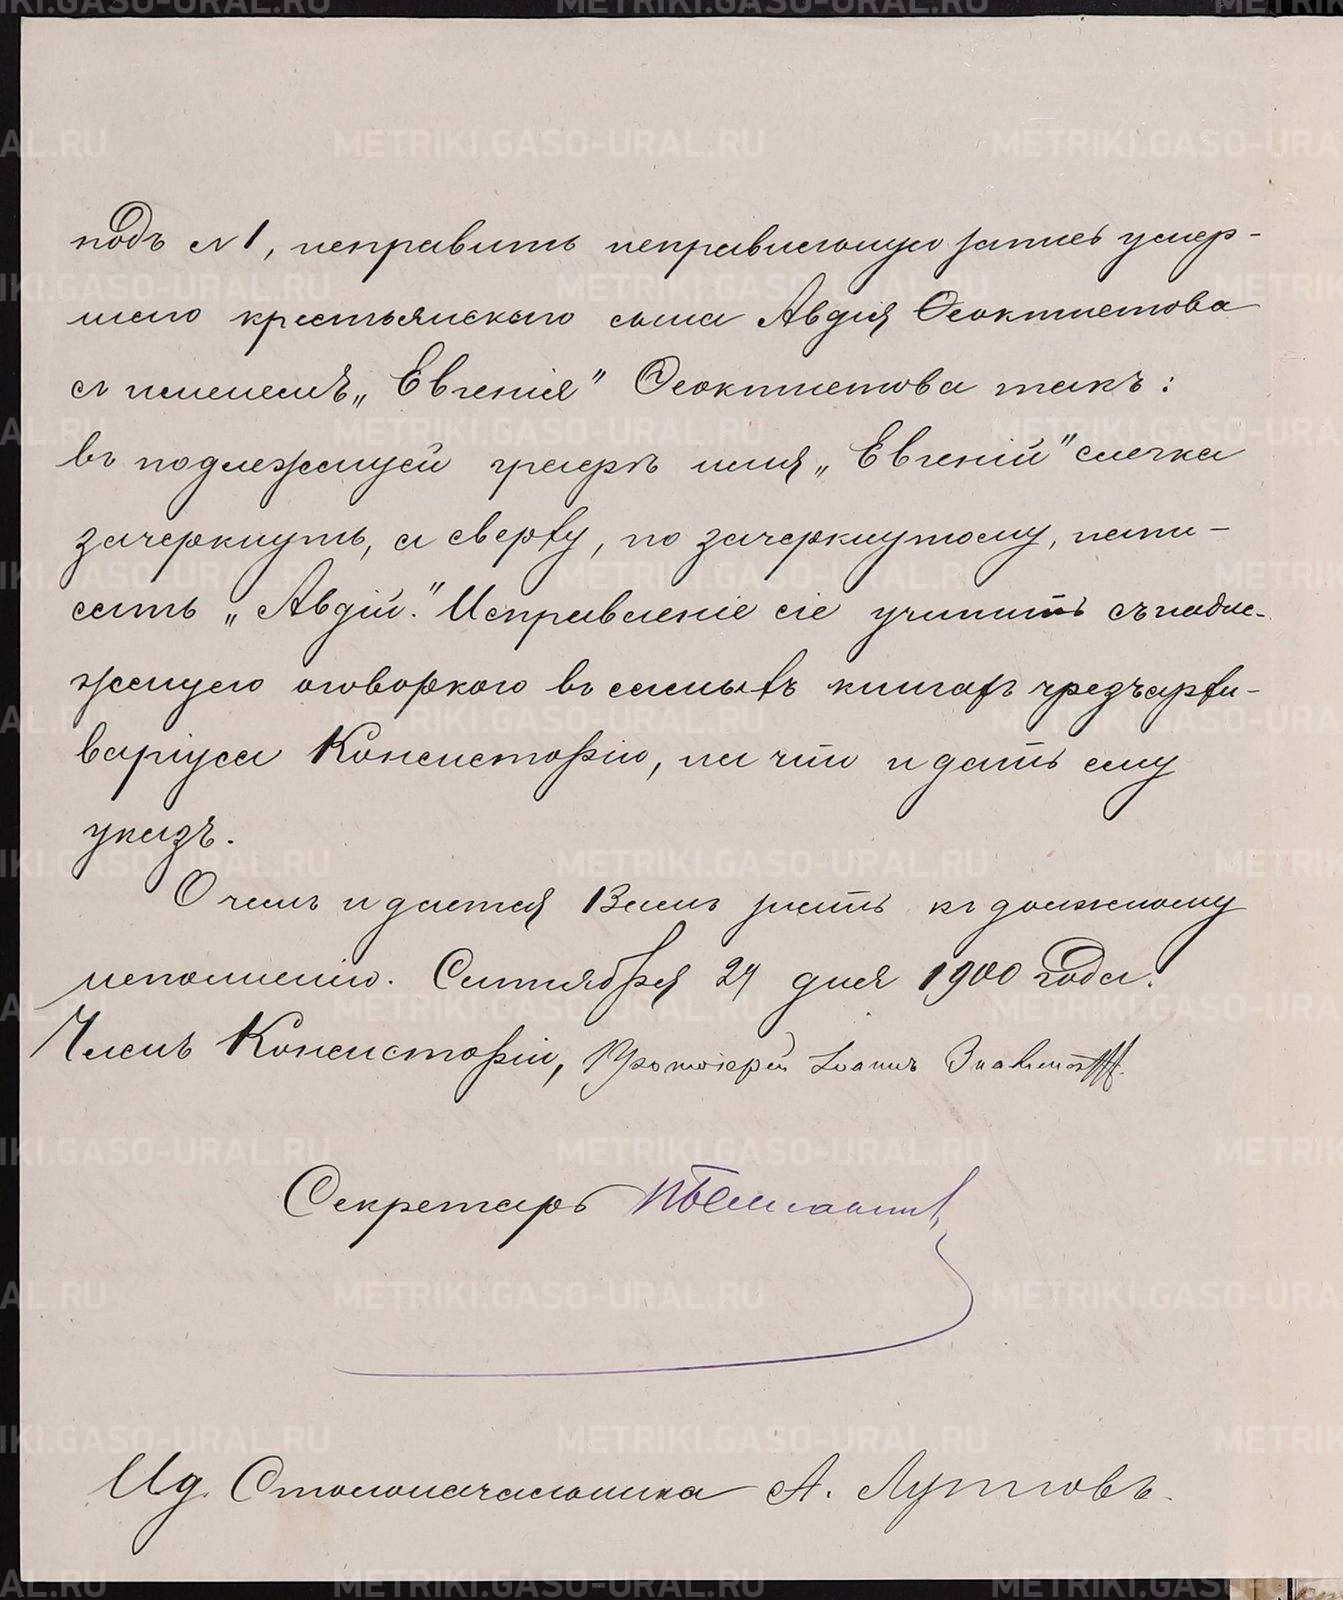 подъ № 1, исправить неправильную запись умер-
шаго крестьянскаго сына Авдія Ѳеоктистова
съ именемъ „Евгенія" Ѳеоктистова такъ:
въ подлежащей графѣ имя „Евгеній" слегка
зачеркнуть, а сверху, по зачеркнутому, напи-
сать „Авдій." Исправленіе сіе учинить съ надле-
жащею оговоркою въ самыхъ книгахъ чрезъ архи-
варіуса Консисторіи, на что и дать ему
указъ.
О чемъ и дается Вамъ знать къ должному
исполненію. Сентября 24 дня 1900 года.
Членъ Консисторіи, Протоіерей Іоаннъ
Секретарь
И д. Столоначальника А. Лутковъ.
METRIKI.GASO-URAL.RU